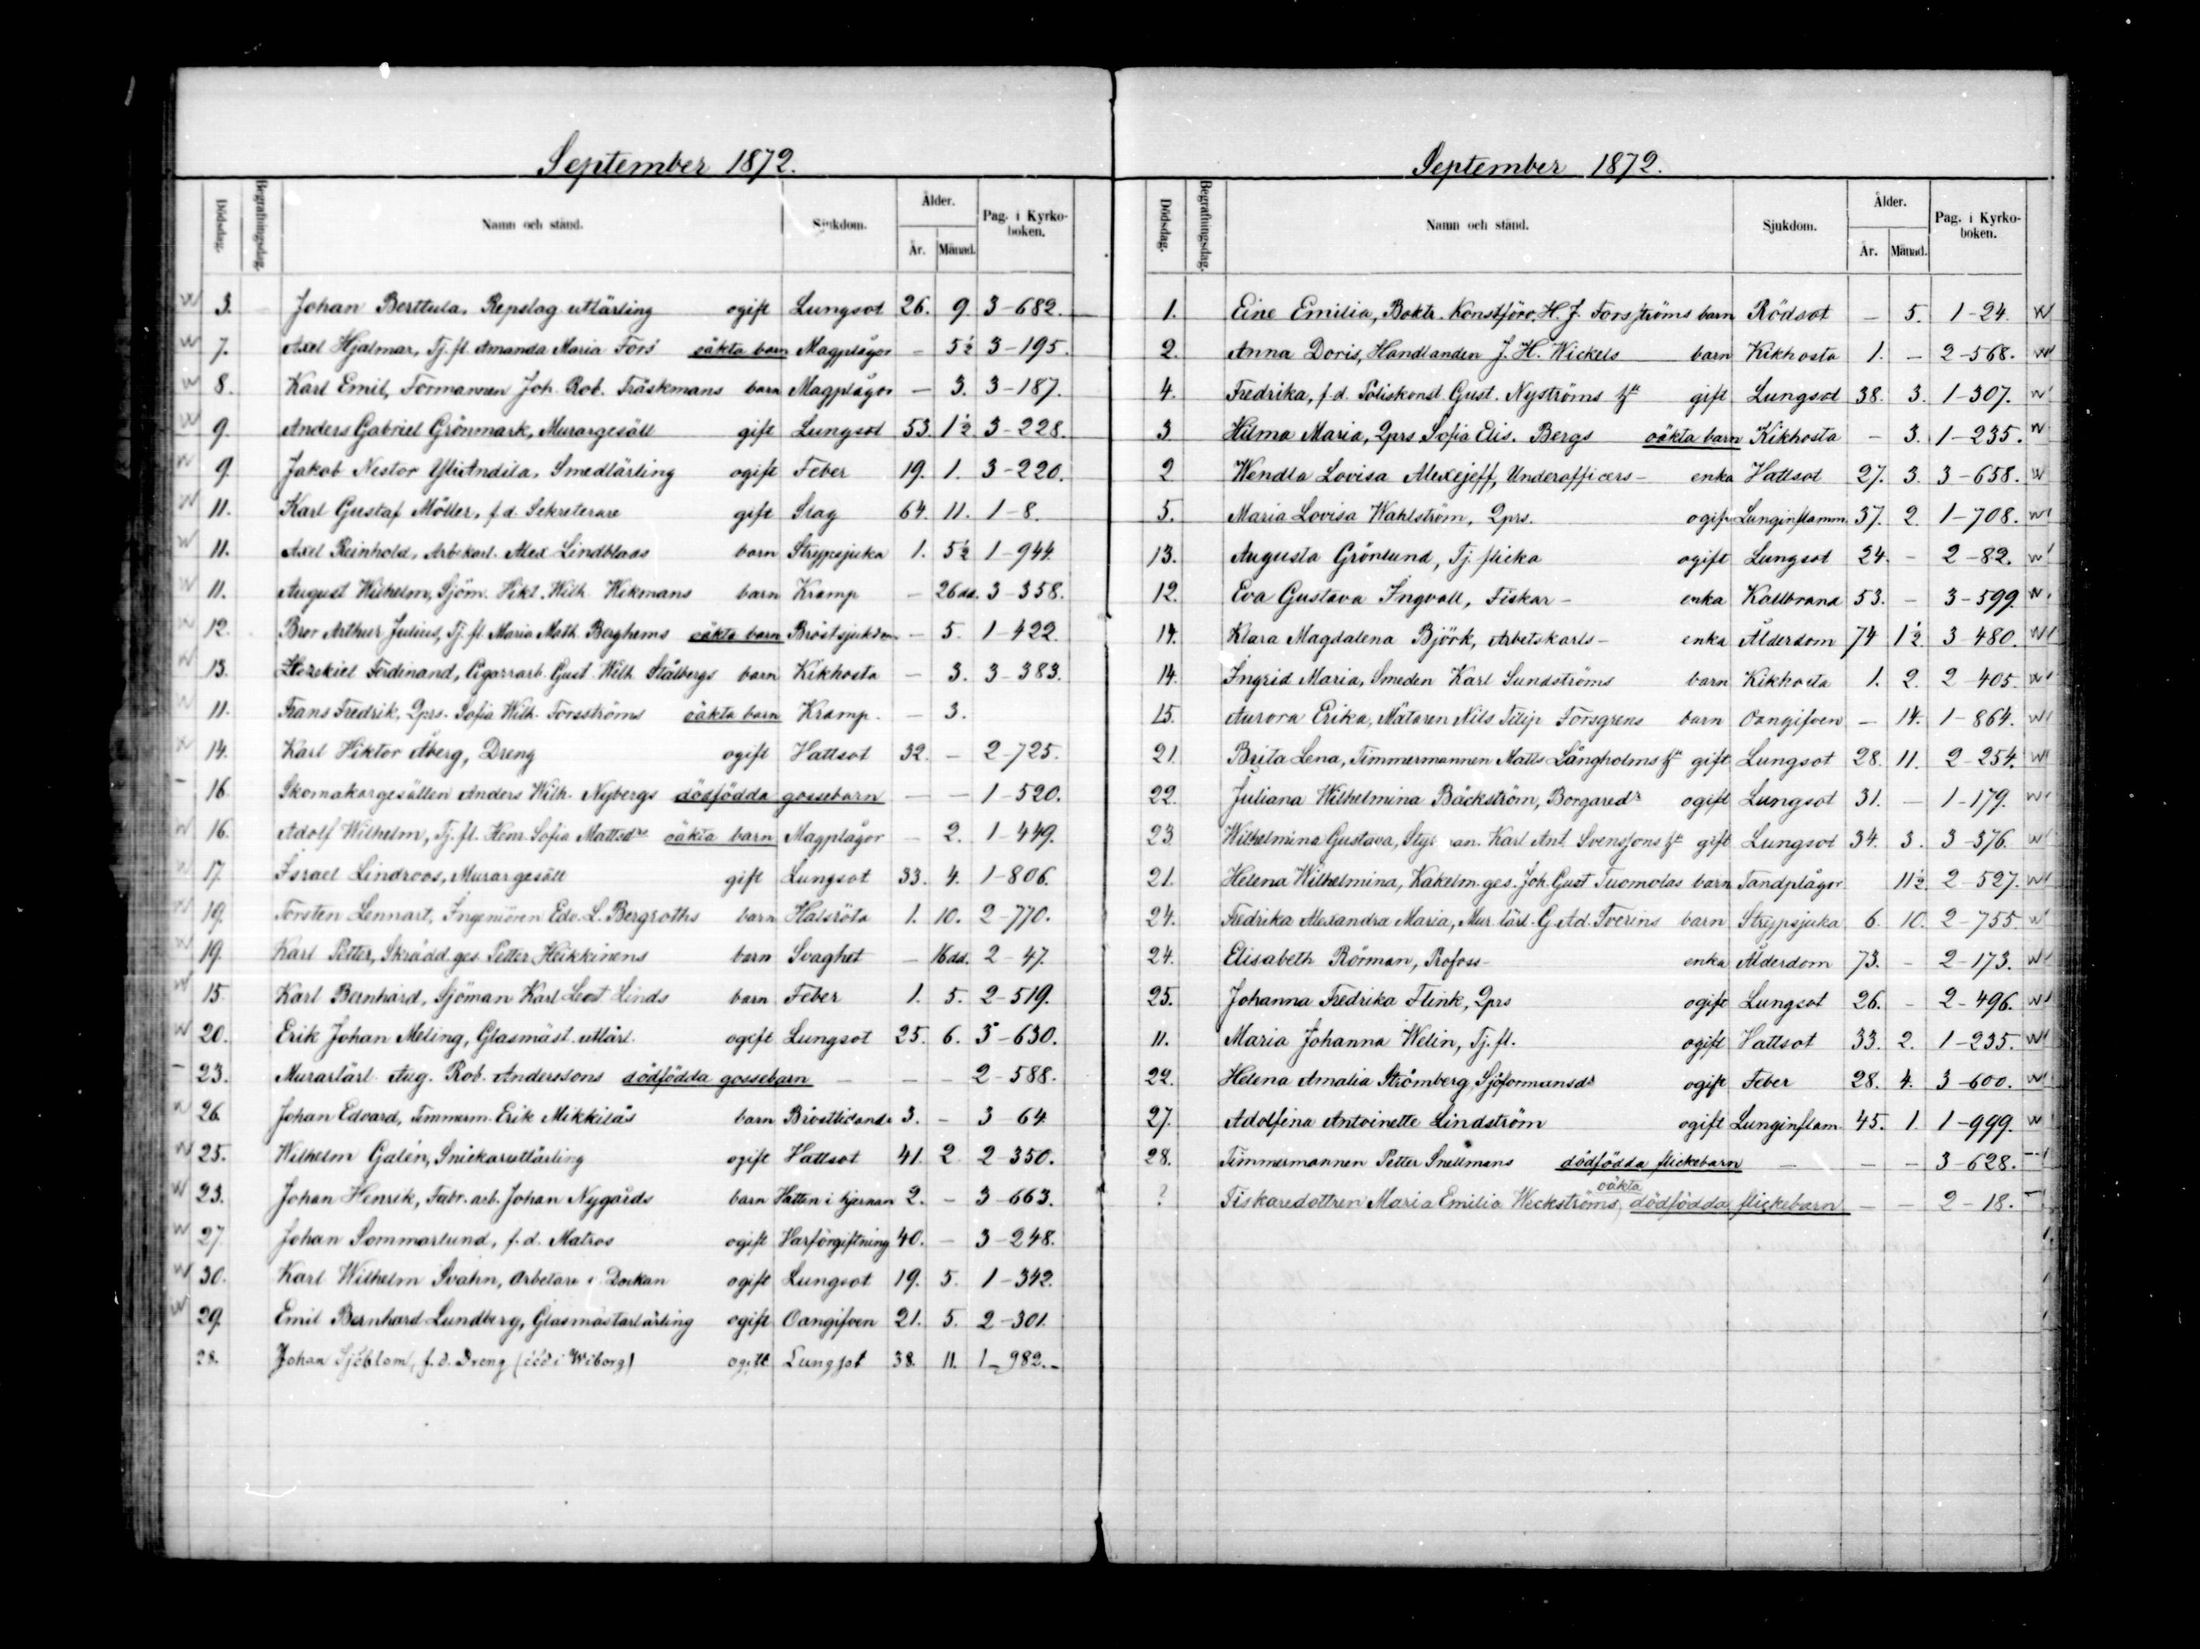 September 1872.
Dödsdag. Begrafningsdag. Namn och stånd. Sjukdom. Ålder. År. Månad. Pag. i Kyrko-boken.
3. Johan Berttula, Repslag. utlärling ogift Lungsot 26. 9. 3-682.
7. Axel Hjalmar, Tj. fl. Amanda Maria Fors oäkta barn Magplågor - 5½ 3-195.
8. Karl Emil, Formannen Joh. Rob. Träskmans barn Magplågor - 3. 3-187.
9. Anders Gabriel Grönmark, Murargesäll gift Lungsot 53. 1½ 3-228.
9. Jakob Nestor Yli Andila, Smedlärling ogift Feber 19. 1. 3-220.
11. Karl Gustaf Möller, f.d. Sekreterare gift Slag 64. 11. 1-8.
11. Axel Reinhold, Arb.karl. Alex Lindblads barn Strypsjuka 1. 5½ 1-944
11. August Wilhelm, Sjöm. Wikt. Wilh. Wikmans barn Kramp - 26 da. 3-358.
12. Bror Arthur Julius, Tj. fl. Maria Math. Berghems oäkta barn Bröstsjukdom - 5. 1-422.
13. Hezekiel Ferdinand, Cigarrarb. Gust. Wilh. Stålbergs barn Kikhosta - 3. 3-383.
11. Frans Fredrik, Qprs. Sofia Wilh. Forsströms oäkta barn Kramp. - 3.
14. Karl Wiktor Åberg, Dreng ogift Hattsot 32. - 2-725.
16. Skomakargesällen Anders Wilh. Nybergs dödfödda gossebarn - - 1-520.
16. Adolf Wilhelm, Tj. fl. Henr. Sofia Mattsdrs oäkta barn Magplågor - 2. 1-449.
17. Israel Lindroos, Murargesäll gift Lungsot 33. 4. 1-806.
19. Torsten Lennart, Ingeniören Edv. L. Bergroths barn Halsröta 1. 10. 2-770.
19. Karl Petter, Skrädd. ges. Petter Heikkinens barn Svaghet - 16 da. 2-47.
15. Karl Bernhard, Sjöman Karl Leot Linds barn Feber 1. 5. 2-519.
20. Erik Johan Meling, Glasmäst. utlärl. ogift Lungsot 25. 6. 3-630.
23. Murarlärl. Aug. Rob. Anderssons dödfödda gossebarn - - - 2-588.
26. Johan Edvard, Timmerm. Erik Mikkiläs barn Bröstlidande 3. - 3-64.
25. Wilhelm Galén, Snickareutlärling ogift Hattsot 41. 2 2-350.
23. Johan Henrik, Fabr. arb. Johan Nygårds barn Vatten i hjernan 2. - 3-663.
27. Johan Sommarlund, f.d. Matros ogift Varförgiftning 40. - 3-248.
30. Karl Wilhelm Svahn, Arbetare i Dockan ogift Lungsot 19. 5. 1-342.
29. Emil Bernhard Lundberg, Glasmästarlärling ogift Oangifven 21. 5. 2-301.
28. Johan Sjöblom, f.d. Dreng (död i Wiborg) ogift Lungsot 38. 11. 1-982.-
September 1872.
Dödsdag. Begrafningsdag. Namn och stånd. Sjukdom. Ålder. År. Månad. Pag. i Kyrko-boken.
1. Eine Emilia, Boktr. Konstförv. H. J. Forsströms barn Rödsot - 5. 1-24.
2. Anna Doris, Handlanden J. H. Wickels barn Kikhosta 1. - 2-568.
4. Fredrika, f.d. Poliskonst. Gust. Nyströms h:u gift Lungsot 38. 3. 1-307.
3. Hilma Maria, Qprs Sofia Elis. Bergs oäkta barn Kikhosta - 3. 1-235.
2 Wendla Lovisa Alexejeff, Underofficers- enka Hattsot 27. 3. 3-658.
5. Maria Lovisa Wahlström, Qprs. ogift Lunginflamm. 37. 2. 1-708.
13. Augusta Grönlund, Tj. flicka ogift Lungsot 24. - 2-82.
12. Eva Gustava Ingvall, Fiskar- enka Kallbrand 53. - 3-599.
14. Klara Magdalena Björk, Arbetskarls- enka Ålderdom 74 1½ 3-480.
14. Ingrid Maria, Smeden Karl Sundströms barn Kikhosta 1. 2. 2-405.
15. Aurora Erika, Målaren Nils Filip Forsgrens barn Oangifven - 14. 1-864.
21. Brita Lena, Timmermannen Matts Långholms h:u gift Lungsot 28. 11. 2-254.
22. Juliana Wilhelmina Bäckström, Borgaredr ogift Lungsot 31. - 1-179.
23. Wilhelmina Gustava, Karl Ant. Svenssons h:u gift Lungsot 34. 3. 3-376.
21. Helena Wilhelmina, Kakelm. ges. Joh. Gust Tuomolas barn Tandplågor 11½ 2-527.
24. Fredrika Alexandra Maria, Mur. lärl. G. Ad. Tverins barn Strypsjuka 6. 10. 2-755.
24. Elisabeth Rörman, Profoss- enka Ålderdom 73. - 2-173.
25. Johanna Fredrika Flink, Qprs ogift Lungsot 26. - 2-496.
11. Maria Johanna Welin, Tj. fl. ogift Hattsot 33. 2. 1-235.
22. Helena Amalia Strömberg, Sjöformansdr ogift Feber 28. 4. 3-600.
27. Adolfina Antoinette Lindström ogift Lunginflam. 45. 1. 1-999.
28. Timmermannen Petter Snellmans dödfödda flickebarn - - - 3-628.
? Fiskaredottren Maria Emilia Weckströms oäkta dödfödda flickebarn - - 2-18.